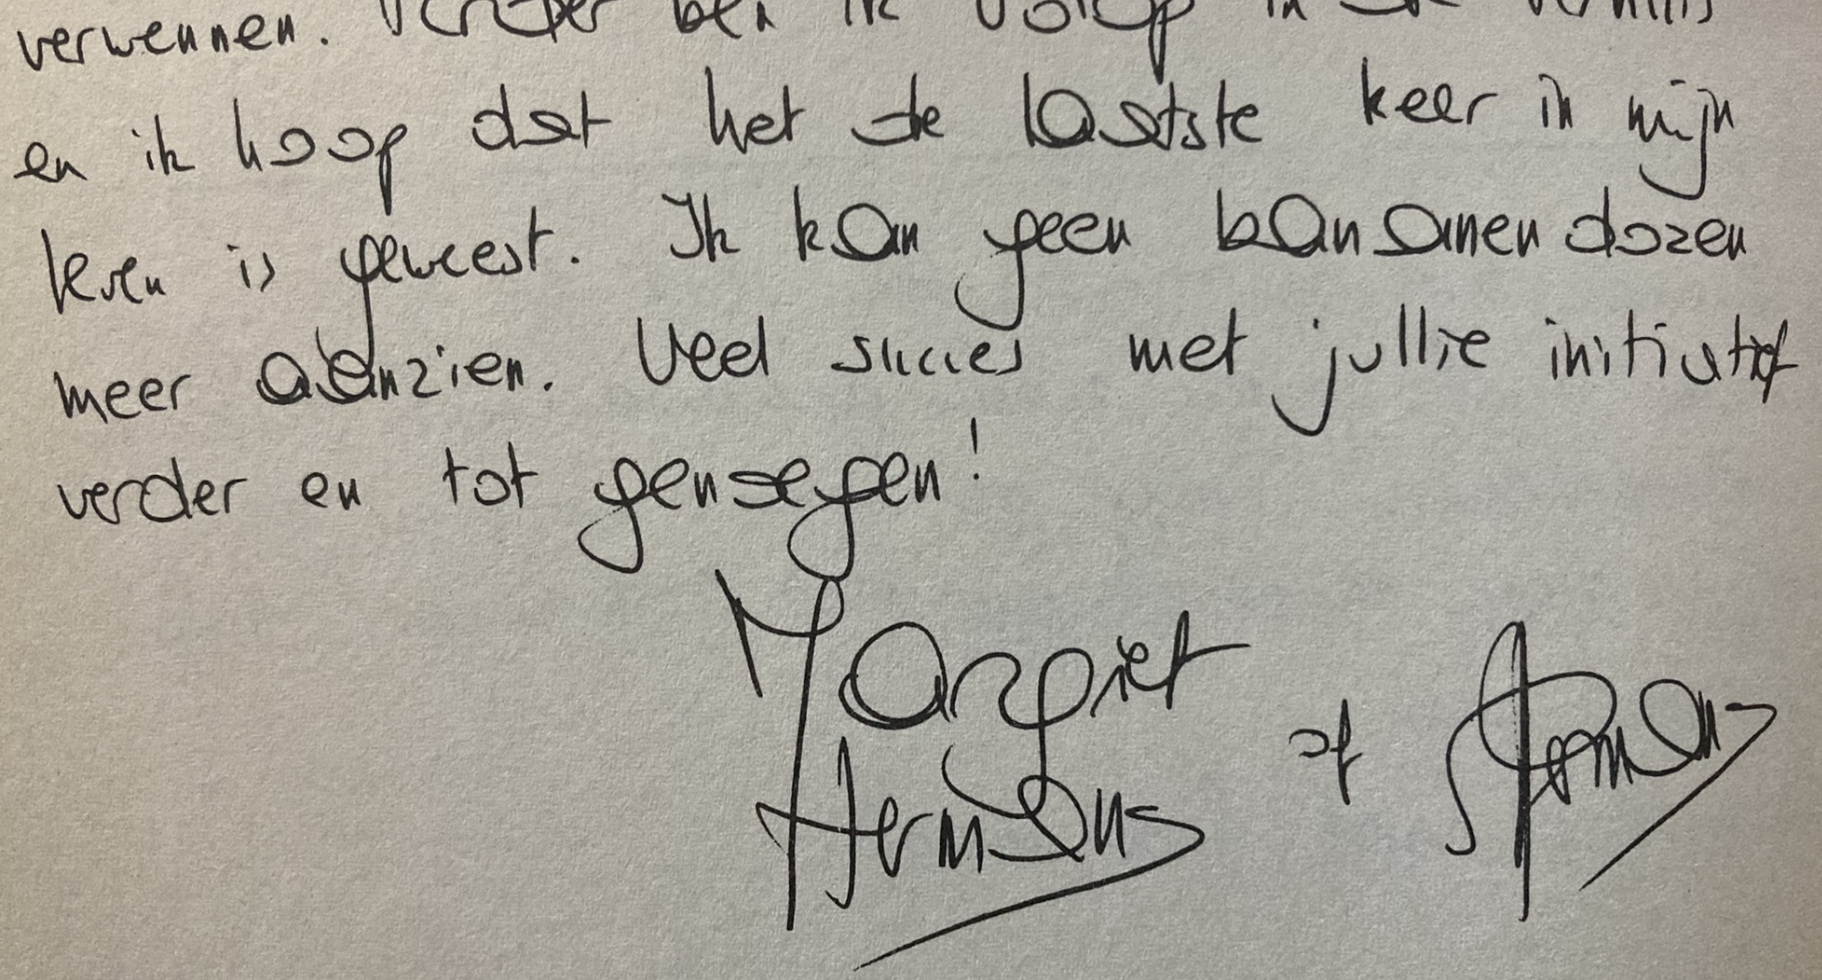 verwennen. Verder ben ik volop in de verhuis
en ik hoop dat het de laatste keer in mijn
leven is geweest. Ik kan geen bananendozen
meer aanzien. Veel succes met jullie initiatief
verder en tot genoegen!
Margriet
Hermans of Hermans